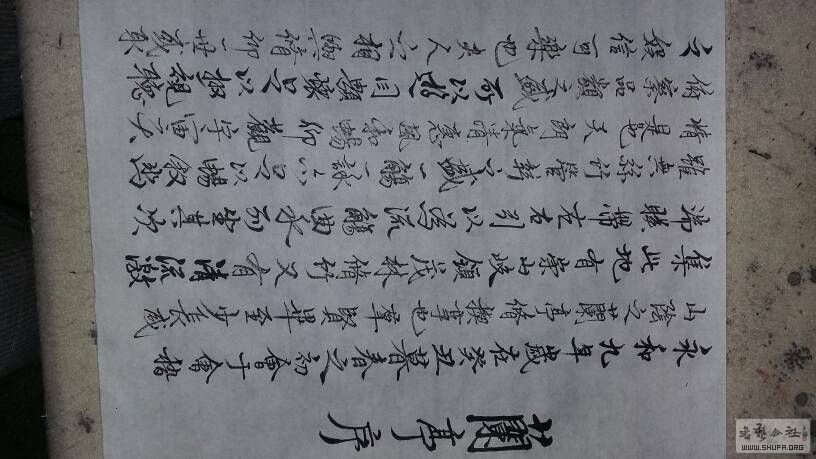 蘭亭序
永和九年歲在癸丑暮春之初會于會稽
山陰之蘭亭脩禊事也群賢畢至少長咸
集此地有崇山峻領茂林脩竹又有清流激
湍暎帶左右引以為流觴曲水列坐其次
雖無絲竹管絃之盛一觴一詠亦足以暢敘幽
情是日也天朗氣清惠風和暢仰觀宇宙之大
俯察品類之盛所以遊目騁懷足以極視聽
之娛信可樂也夫人之相與俯仰一世或取
書藝公社
WWW.SHUFA.ORG